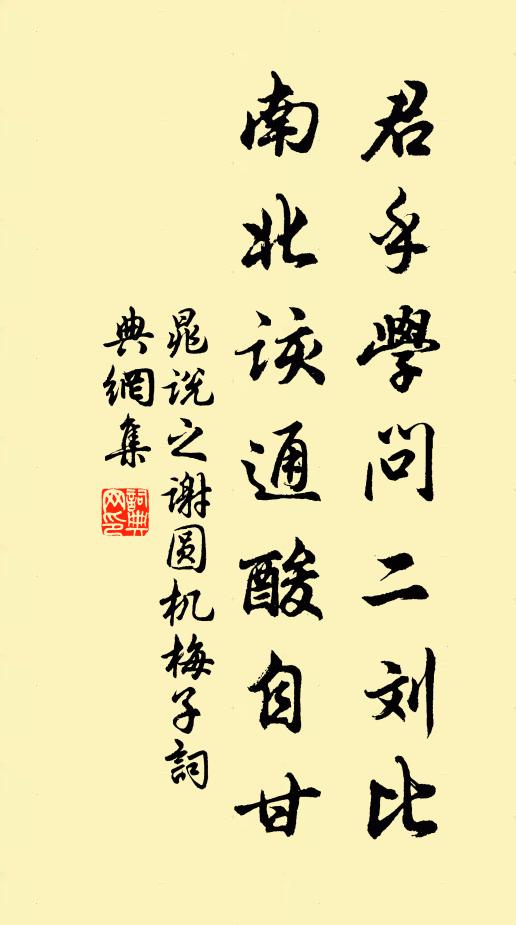 君乎學问二刘比
南北该通酸自甘
晁说之谢圆机梅子詞
典網集
詞典网印